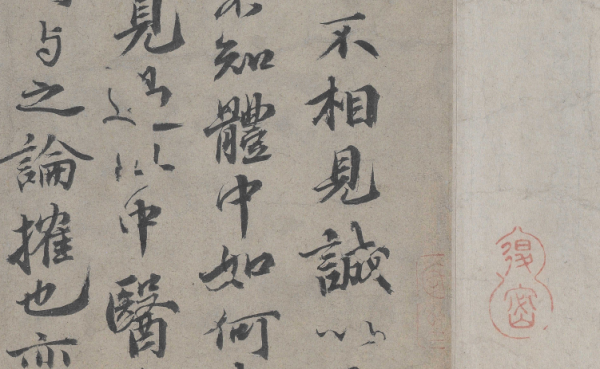 不相見誠以
不知體中如何
見過以中醫
与之論摧也亦